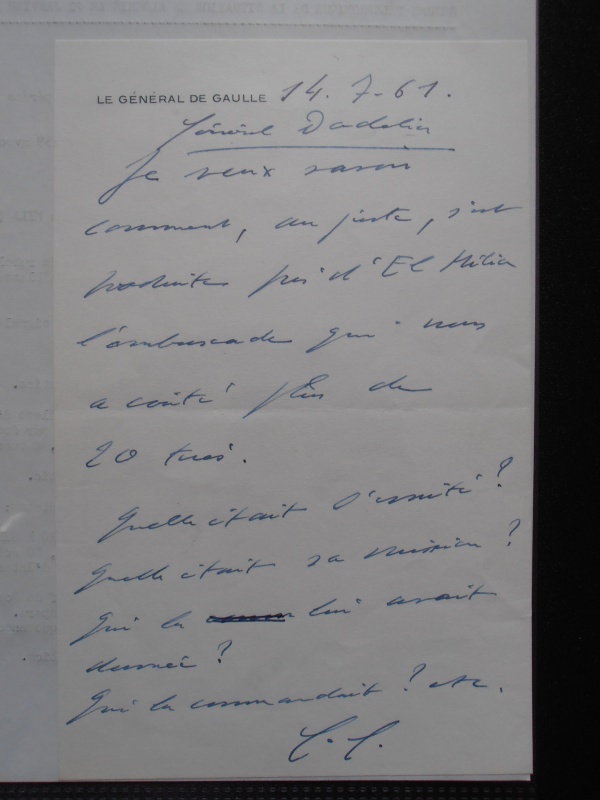 LE GÉNÉRAL DE GAULLE 14.7-61.
Général
Je veux savoir
comment, au juste, s'est
produite près d'El Milia
l'embuscade qui nous
a coûté plus de
20 tués.
Quelle était l'unité ?
Quelle était sa mission ?
Qui la lui avait
donnée ?
Qui la commandait ? etc.